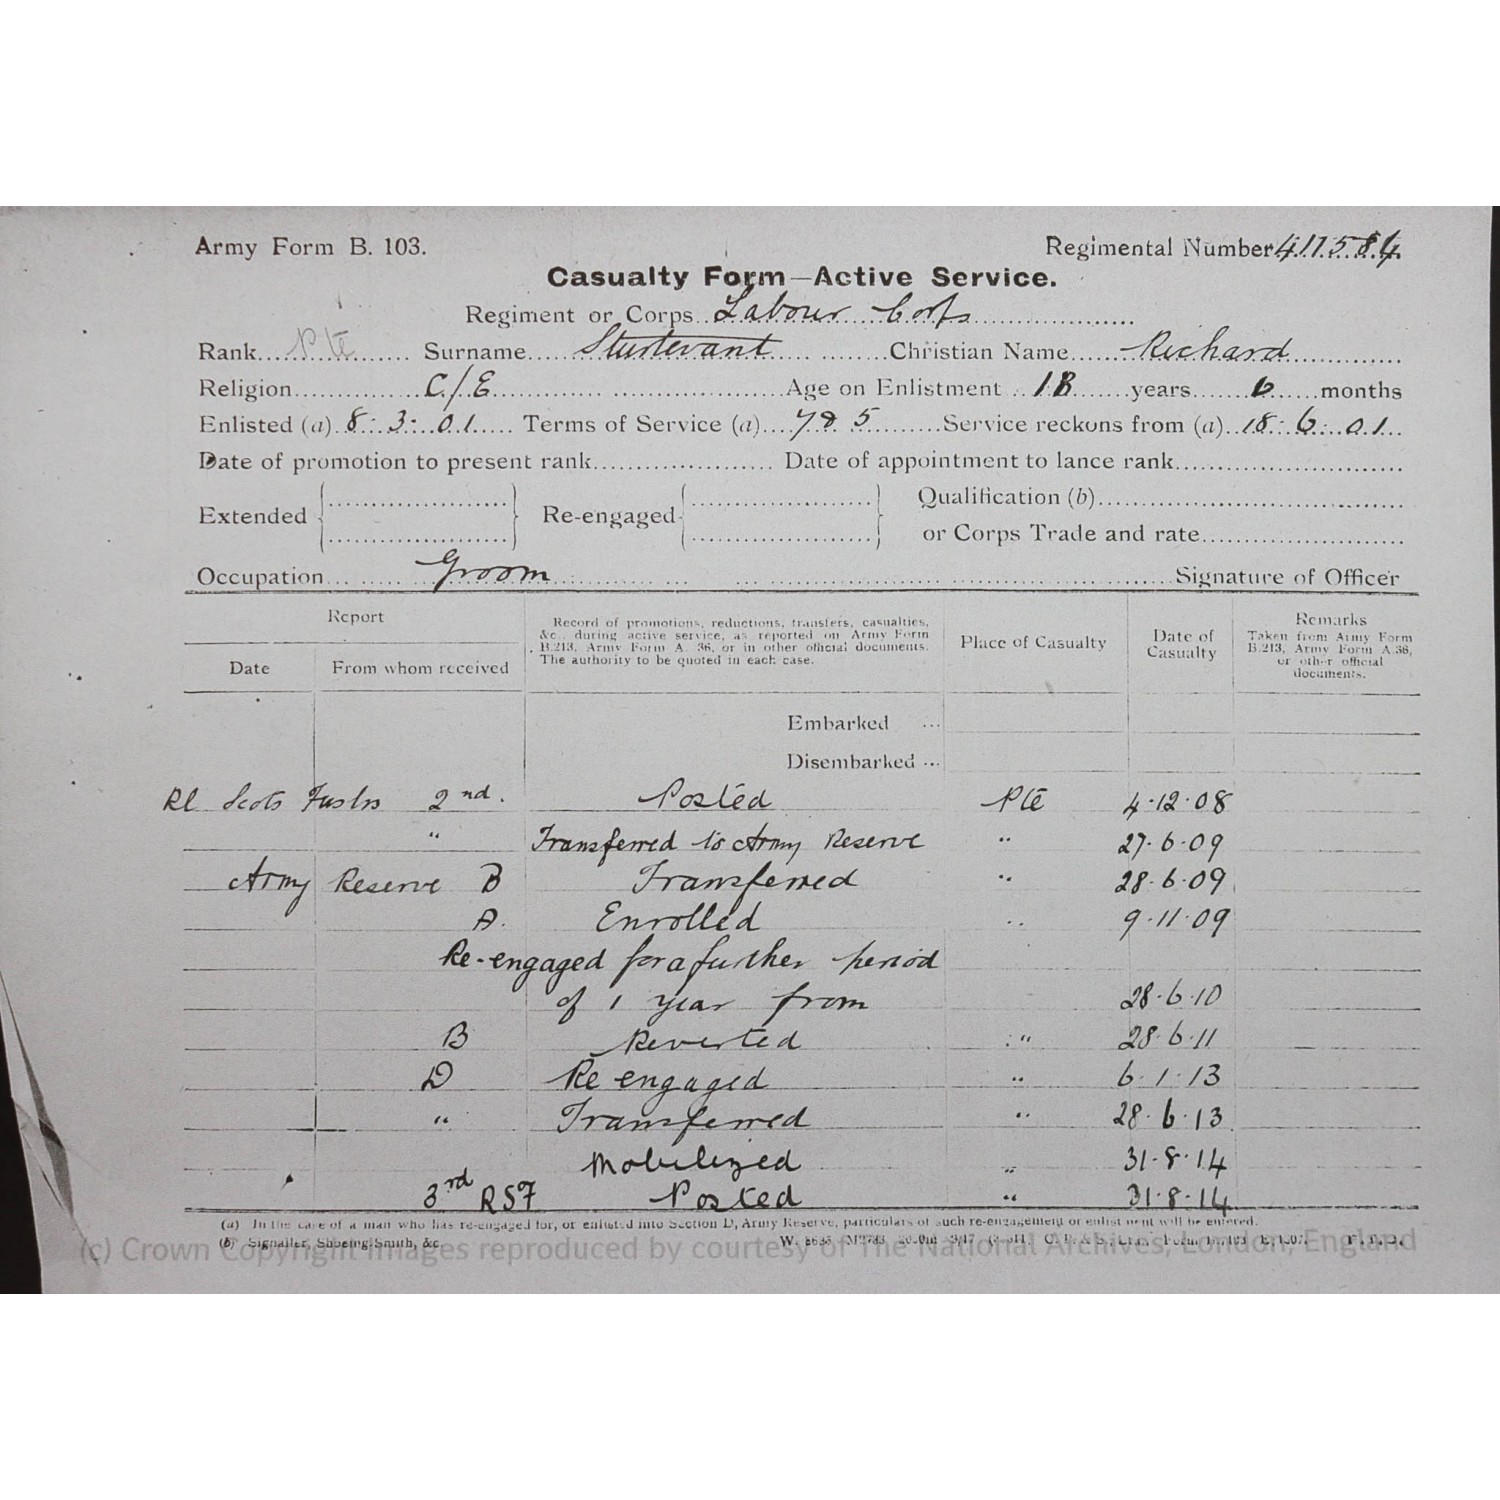 Army Form B. 103.
Regimental Number 417584
Casualty Form—Active Service.
Regiment or Corps Labour Corps
Rank Pte Surname Sturtevant Christian Name Richard
Religion C/E Age on Enlistment 18 years 6 months
Enlisted (a) 8.3.01 Terms of Service (a) 7 & 5 Service reckons from (a) 18.6.01
Date of promotion to present rank Date of appointment to lance rank
Extended Re-engaged Qualification (b)
or Corps Trade and rate
Occupation Groom Signature of Officer
Report
Date From whom received
Record of promotions, reductions, transfers, casualties,
&c., during active service, as reported on Army Form
B.213, Army Form A. 36, or in other official documents.
The authority to be quoted in each case.
Place of Casualty
Date of
Casualty
Remarks
Taken from Army Form
B.213, Army Form A.36,
or other official
documents.
Embarked ...
Disembarked ...
Rl Scots Fusrs 2nd. Posted Pte 4.12.08
" Transferred to Army Reserve " 27.6.09
Army Reserve B Transferred " 28.6.09
A. Enrolled " 9.11.09
Re-engaged for a further period
of 1 year from 28.6.10
B Reverted " 28.6.11
D Re engaged " 6.1.13
" Transferred " 28.6.13
Mobilized " 31.8.14
3rd RSF Posted " 31.8.14
(a) In the case of a man who has re-engaged for, or enlisted into Section D, Army Reserve, particulars of such re-engagement or enlistment will be entered.
(b) Signaller, Shoeing-Smith, &c.
(c) Crown Copyright Images reproduced by courtesy of The National Archives, London, England